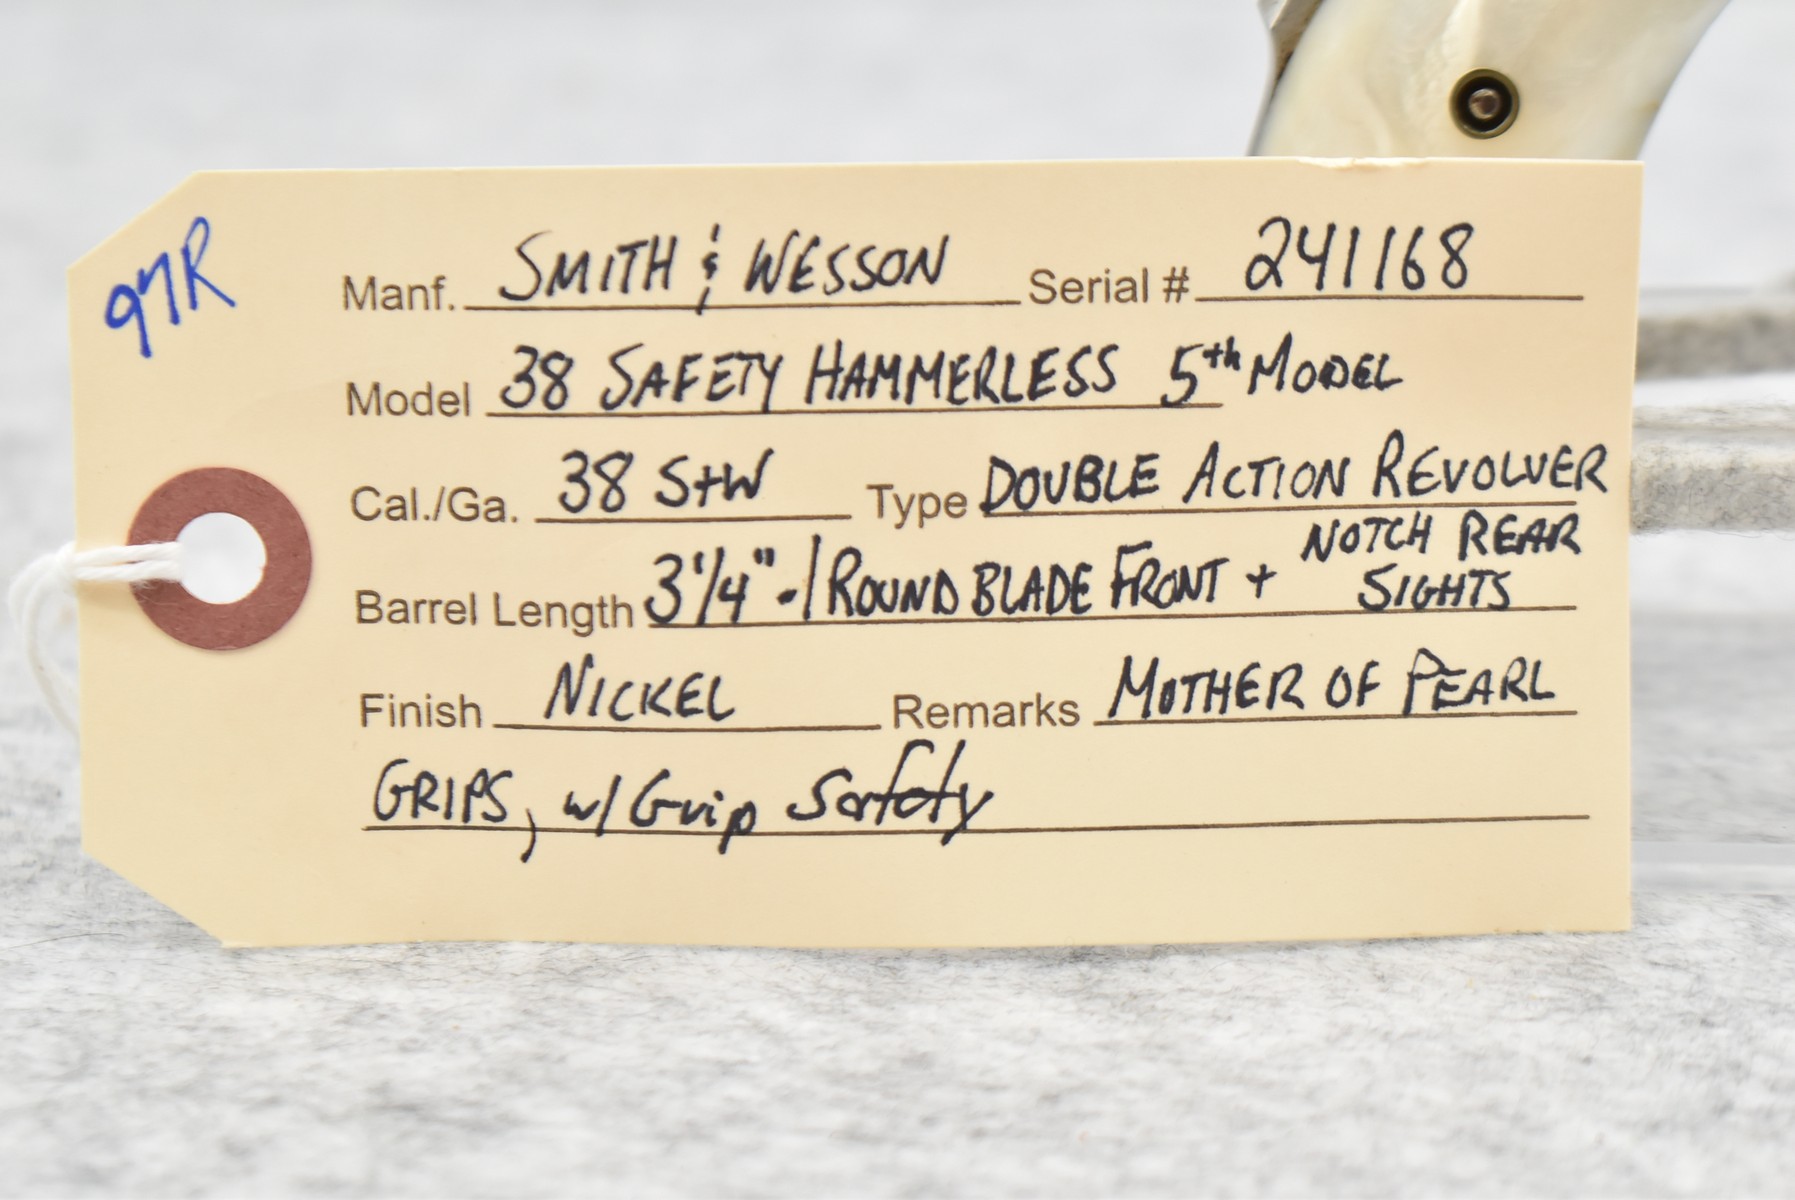 97R
Manf. SMITH & WESSON Serial # 241168
Model 38 SAFETY HAMMERLESS 5th MODEL
Cal./Ga. 38 S+W Type DOUBLE ACTION REVOLVER
Barrel Length 3 1/4" - / ROUND BLADE FRONT + NOTCH REAR
SIGHTS
Finish NICKEL Remarks MOTHER OF PEARL
GRIPS, w/ Grip Safety